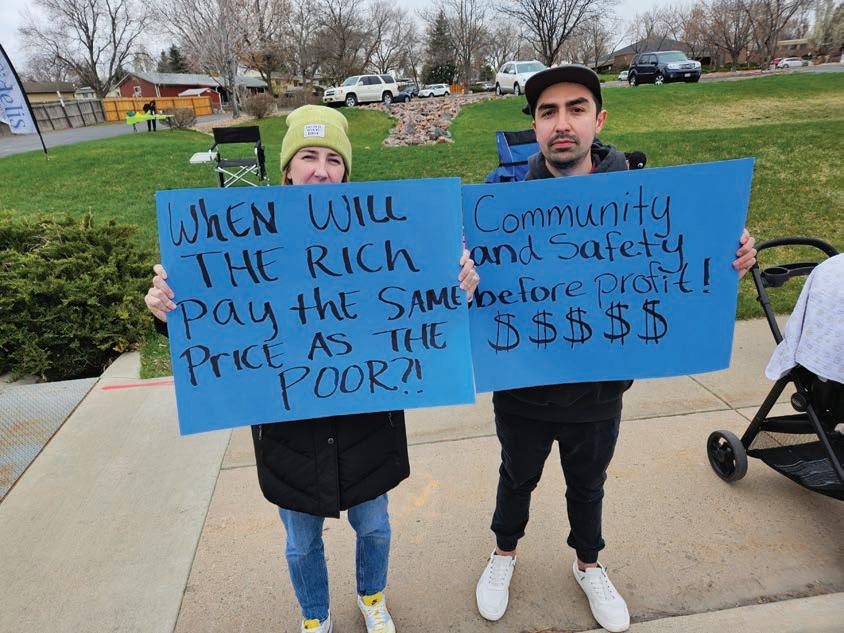 WHEN WILL
THE RICH
PAY the SAME
PRICE AS THE
POOR?!
Community
and Safety
before profit!
$$$$$
delis